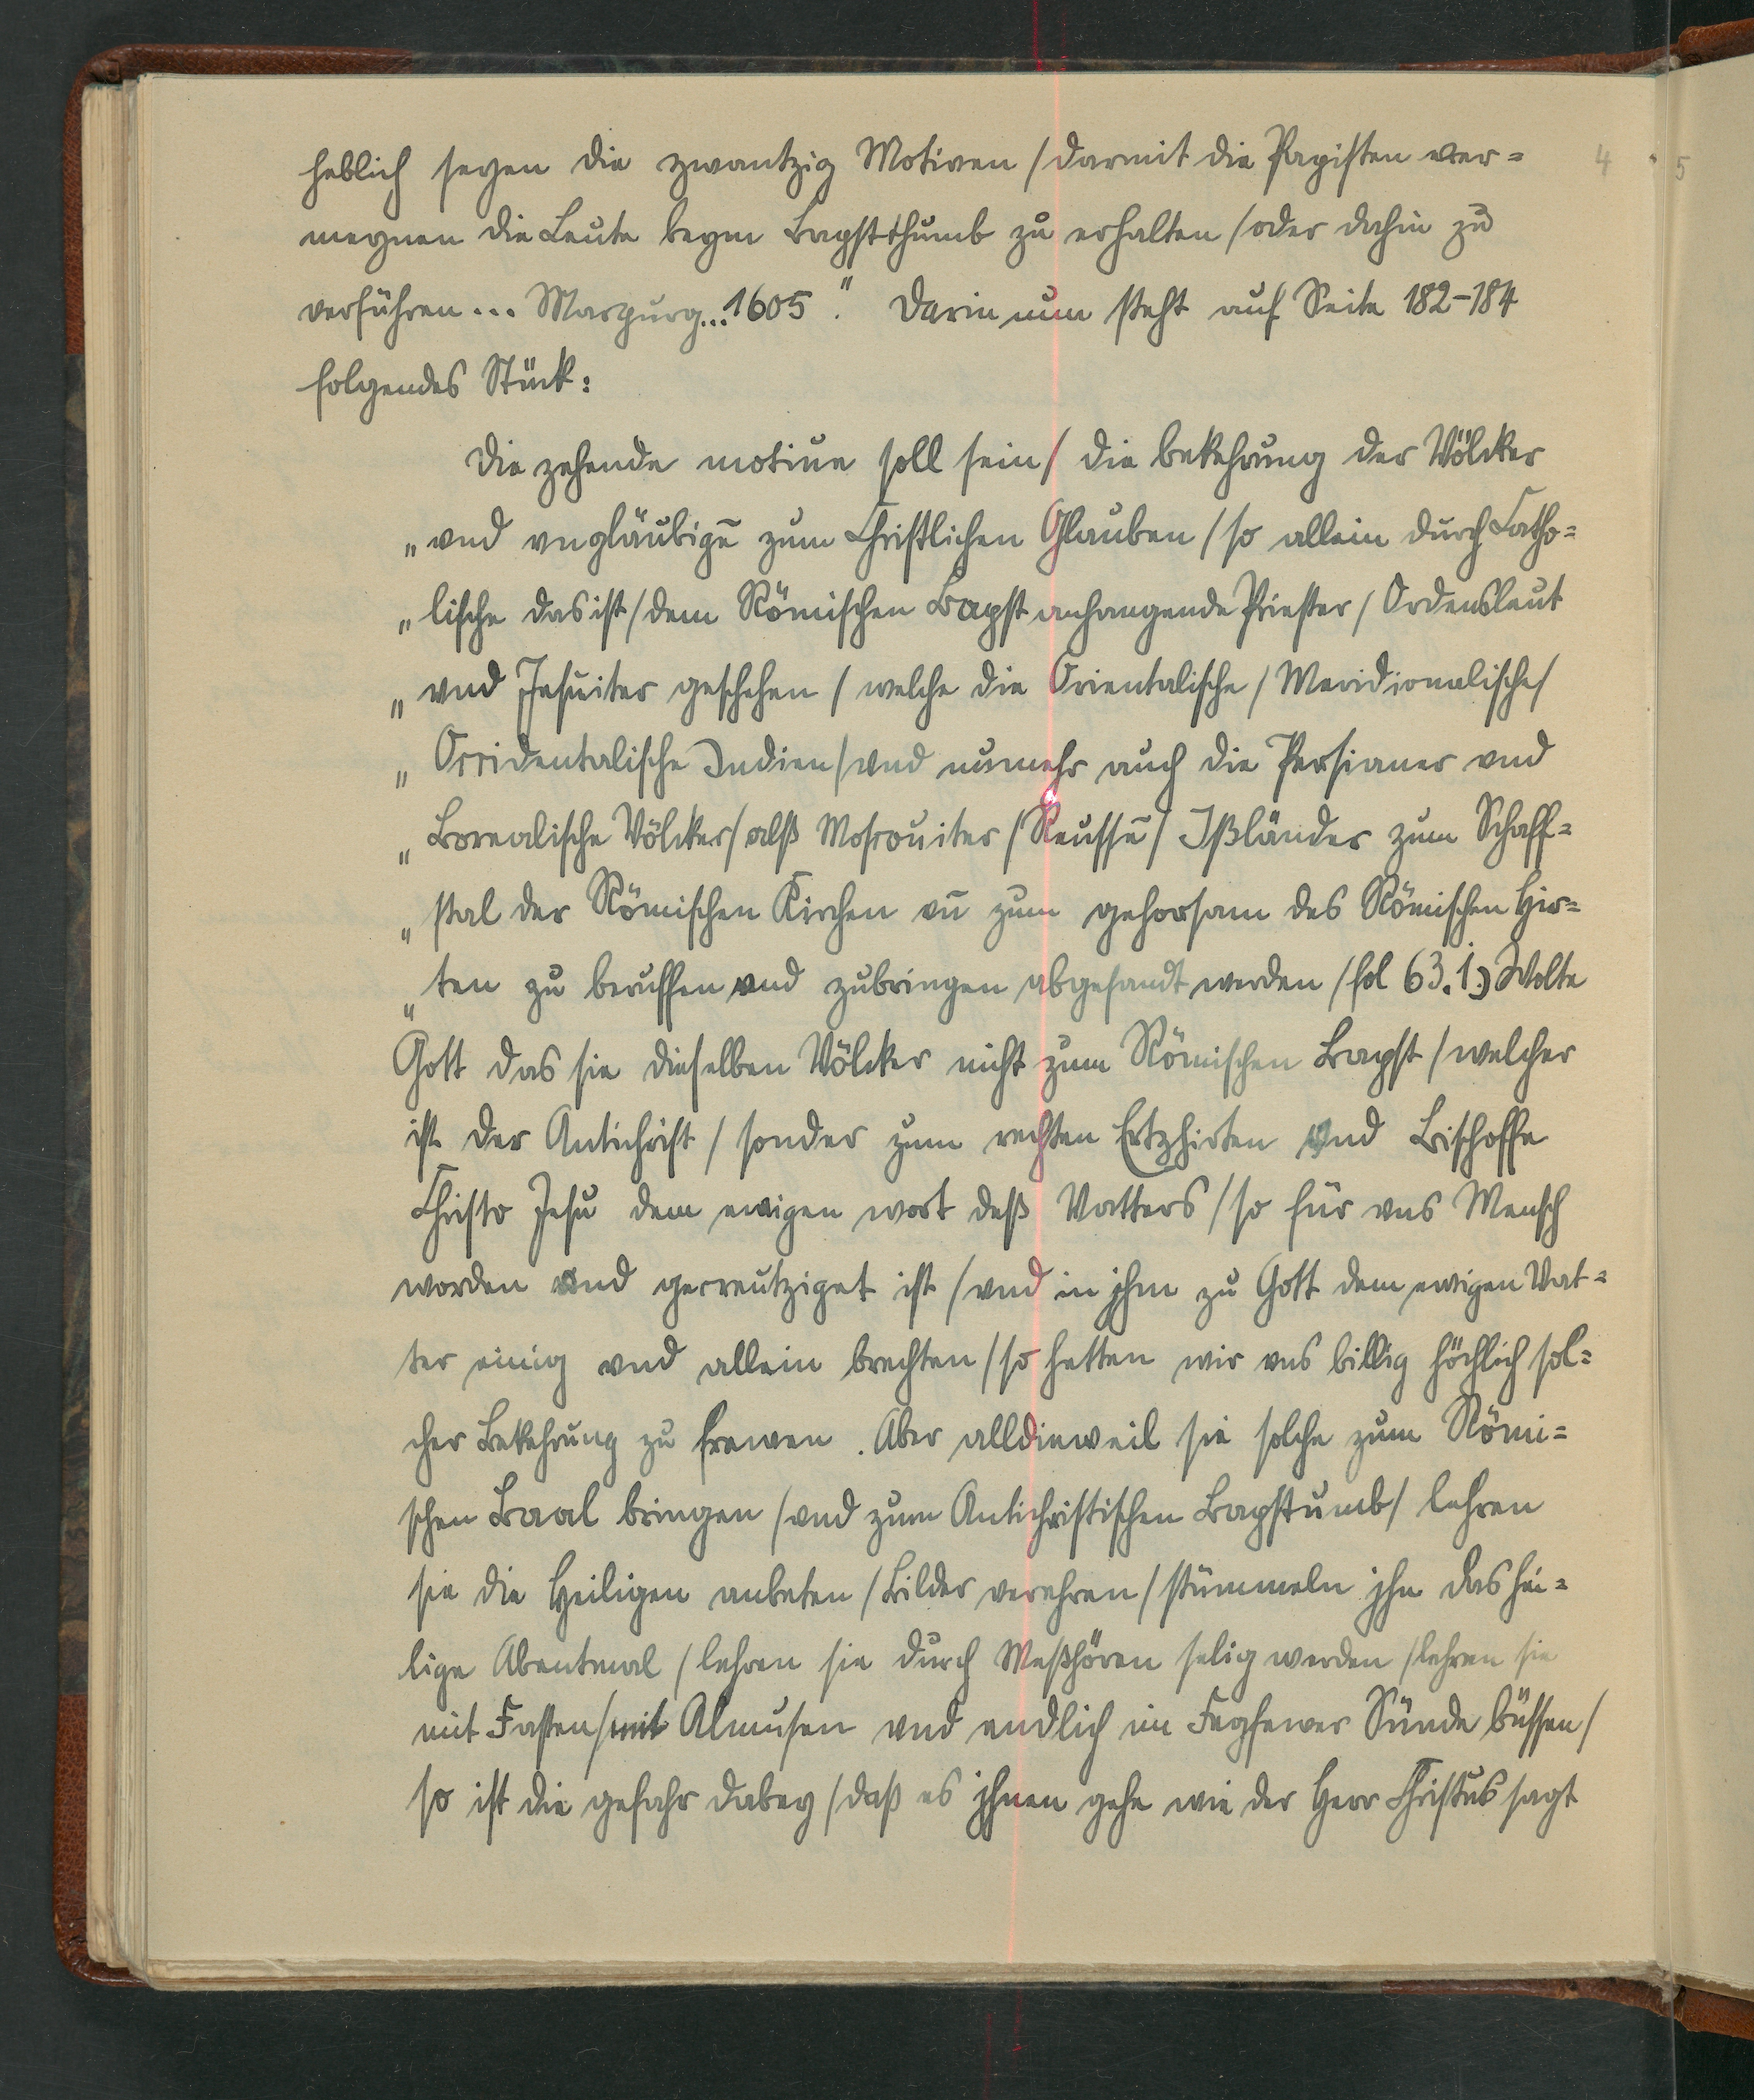 heblich seyen die zwantzig Motiven / darmit die Papisten ver=
meynen die Leute beym Bapstthumb zu erhalten / oder dahin zu
verführen... Marpurg... 1605." Darin nun steht auf Seite 182-184
folgendes Stück:
Die zehende motiue soll sein / die bekehrung der Völcker
„ vnd vngläubigē zum Christlichen Glauben / so allein durch Catho=
„ lische das ist / dem Römischen Bapst anhangende Priester / Ordensleut
„ vnd Jesuiter geschehen / welche die Orientalische / Meridionalische /
„ Occidentalische Indien / vnd numehr auch die Persianer vnd
„ Borealische Völcker / alß Moscouiter / Reussē / Ißländer zum Schaff=
„ stal der Römischen Kirchen vn̄ zum gehorsam des Römischen Hir=
„ ten zu beruffen vnd zubringen abgesandt werden / fol 63.1.) Wolte
Gott das sie dieselben Völcker nicht zum Römischen Bapst / welcher
ist der Antichrist / sonder zum rechten Ertzhirten vnd Bischoffe
Christo Jesu dem ewigen wort deß Vatters / so für vns Mensch
worden vnd gecreutziget ist / vnd in jhm zu Gott dem ewigen Vat=
ter einig vnd allein brechten / so hetten wir vns billig höchlich sol=
cher Bekehrung zu frewen. Aber alldieweil sie solche zum Römi=
schen Baal bringen / vnd zum Antichristischen Bapstumb / lehren
sie die Heiligen anbeten / Bilder verehren / stümmeln jhn das hei=
lige Abentmal / lehren sie durch Meßhören selig werden / lehren sie
mit Fasten / mit Almusen vnd endlich im Fegfewer Sünde büssen /
so ist die gefahr dabey / daß es jhnen gehe wie der Herr Christus sagt
4
5